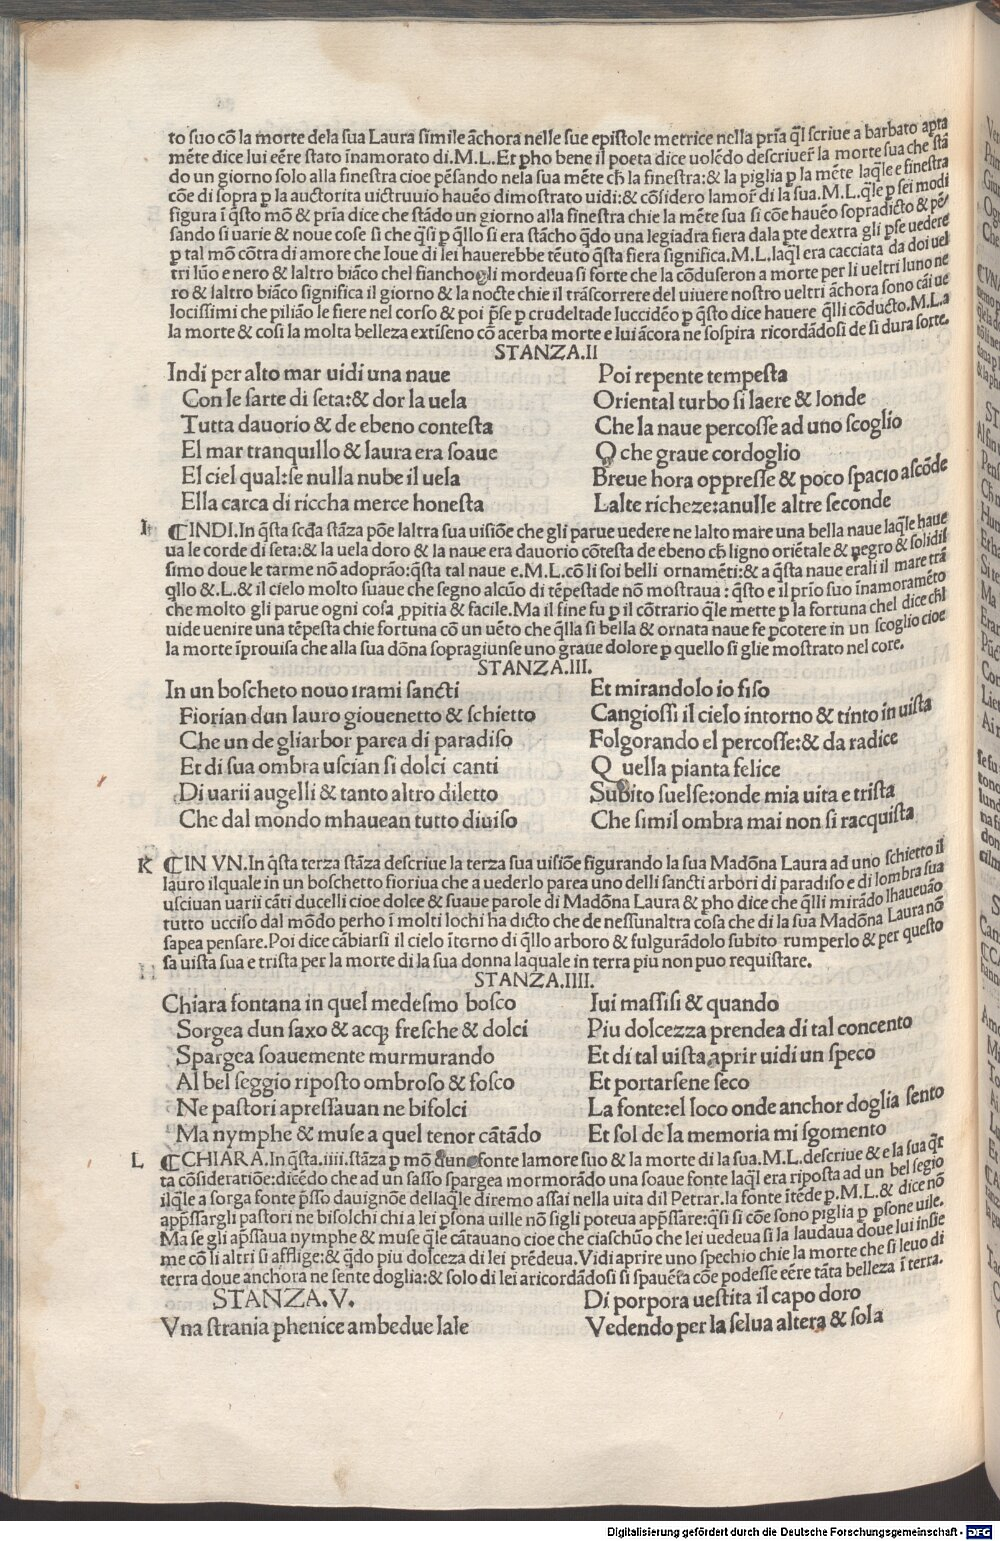 to suo cō la morte dela sua Laura simile āchora nelle sue epistole metrice nella pria q̄l scriue a barbato apta
mēte dice lui eēre stato īnamorato di.M.L.Et pho bene il poeta dice uolēdo descriuer̄ la morte sua che stā
do un giorno solo alla finestra cioe pēsando nela sua mēte ch̄ la finestra:& la piglia p la mēte laq̄le e finestra
cōe di sopra p la auctorita uictruuio hauēo dimostrato uidi:& cōsidero lamor̄ di la sua.M.L.q̄le p sei modi
figura ī q̄sto mō & pria dice che stādo un giorno alla finestra chie la mēte sua si cōe hauēo sopradicto & pē
sando si uarie & noue cose si che q̄si p q̄llo si era stācho q̄do una legiadra fiera dala pte dextra gli pse uedere
p tal mō cōtra di amore che Ioue di lei hauerebbe tēuto q̄sta fiera significa.M.L.laq̄l era cacciata da doi uel
tri lūo e nero & laltro biāco chel fiancho gli mordeua si forte che la cōduseron a morte per li ueltri luno ne
ro & laltro biāco significa il giorno & la nocte chie il trāscorrere del uiuere nostro ueltri āchora sono cāi ue
locissimi che piliāo le fiere nel corso & poi p̄se p crudeltade luccidēo p q̄sto dice hauere q̄lli cōducto.M.L.a
la morte & cosi la molta belleza extīseno cō acerba morte e lui ācora ne sospira ricordādosi de si dura sorte.
STANZA.II
Indi per alto mar uidi una naue
Con le sarte di seta:& dor la uela
Tutta dauorio & de ebeno contesta
El mar tranquillo & laura era soaue
El ciel qual:se nulla nube il uela
Ella carca di riccha merce honesta
Poi repente tempesta
Oriental turbo si laere & londe
Che la naue percosse ad uno scoglio
O che graue cordoglio
Breue hora oppresse & poco spacio ascōde
Lalte richeze:anulle altre seconde
I ¶INDI.In q̄sta scđa stāza pōe laltra sua uisiōe che gli parue uedere ne lalto mare una bella naue laq̄le haue
ua le corde di seta:& la uela doro & la naue era dauorio cōtesta de ebeno ch̄ ligno oriētale & negro & solidis
simo doue le tarme nō adoprāo:q̄sta tal naue e.M.L.cō li soi belli ornamēti:& a q̄sta naue erali il mare trā
q̄llo &.L.& il cielo molto suaue che segno alcūo di tēpestade nō mostraua : q̄sto e il prīo suo īnamoramēto
che molto gli parue ogni cosa ꝓpitia & facile.Ma il fine fu p il cōtrario q̄le mette p la fortuna chel dice ch̄l
uide uenire una tēpesta chie fortuna cō un uēto che q̄lla si bella & ornata naue fe pcotere in un scoglio cioe
la morte īprouisa che alla sua dōna sopragiunse uno graue dolore p quello si glie mostrato nel core.
STANZA.III.
In un boscheto nouo irami sancti
Fiorian dun lauro giouenetto & schietto
Che un de gliarbor parea di paradiso
Et di sua ombra uscian si dolci canti
Di uarii augelli & tanto altro diletto
Che dal mondo mhauean tutto diuiso
Et mirandolo io fiso
Cangiossi il cielo intorno & tinto in uista
Folgorando el percosse:& da radice
Q uella pianta felice
Subito suelse:onde mia uita e trista
Che simil ombra mai non si racquista
K ¶IN VN.In q̄sta terza stāza descriue la terza sua uisiōe figurando la sua Madōna Laura ad uno schietto il
lauro ilquale in un boschetto fioriua che a uederlo parea uno delli sancti arbori di paradiso e di lombra sua
usciuan uarii cāti ducelli cioe dolce & suaue parole di Madōna Laura & pho dice che q̄lli mirādo lhaueuāo
tutto ucciso dal mōdo perho ī molti lochi ha dicto che de nessunaltra cosa che di la sua Madōna Laura nō
sapea pensare.Poi dice cābiarsi il cielo ītorno di q̄llo arboro & fulgurādolo subito rumperlo & per questo
sa uista sua e trista per la morte di la sua donna laquale in terra piu non puo requistare.
STANZA.IIII.
Chiara fontana in quel medesmo bosco
Sorgea dun saxo & acq; fresche & dolci
Spargea soauemente murmurando
Al bel seggio riposto ombroso & fosco
Ne pastori apressauan ne bifolci
Ma nymphe & muse a quel tenor cātādo
Iui massisi & quando
Piu dolcezza prendea di tal concento
Et di tal uista aprir uidi un speco
Et portarsene seco
La fonte:el loco onde anchor doglia sento
Et sol de la memoria mi sgomento
L ¶CHIARA.In q̄sta.iiii.stāza p mō dune fonte lamore suo & la morte di la sua.M.L.descriue & e la sua q̄r
ta cōsideratiōe:dicēdo che ad un sasso spargea mormorādo una soaue fonte laq̄l era riposta ad un bel segio
ilq̄le a sorga fonte p̄sso dauignōe dellaq̄le diremo assai nella uita dil Petrar.la fonte ītēde p.M.L.& dice nō
app̄ssargli pastori ne bisolchi chi a lei psona uille nō sigli poteua app̄ssare:q̄si si cōe sono piglia p psone uile.
Ma se gli ap̄ssaua nymphe & muse q̄le cātauano cioe che ciaschūo che lei uedeua si la laudaua doue lui insie
me cō li altri si afflige:& q̄do piu dolceza di lei prēdeua.Vidi aprire uno spechio chie la morte che si leuo di
terra doue anchora ne sente doglia:& solo di lei aricordādosi si spauēta cōe podesse eēre tāta belleza ī terra.
STANZA.V.
Vna strania phenice ambedue lale
Di porpora uestita il capo doro
Vedendo per la selua altera & sola
Digitalisierung gefördert durch die Deutsche Forschungsgemeinschaft - DFG